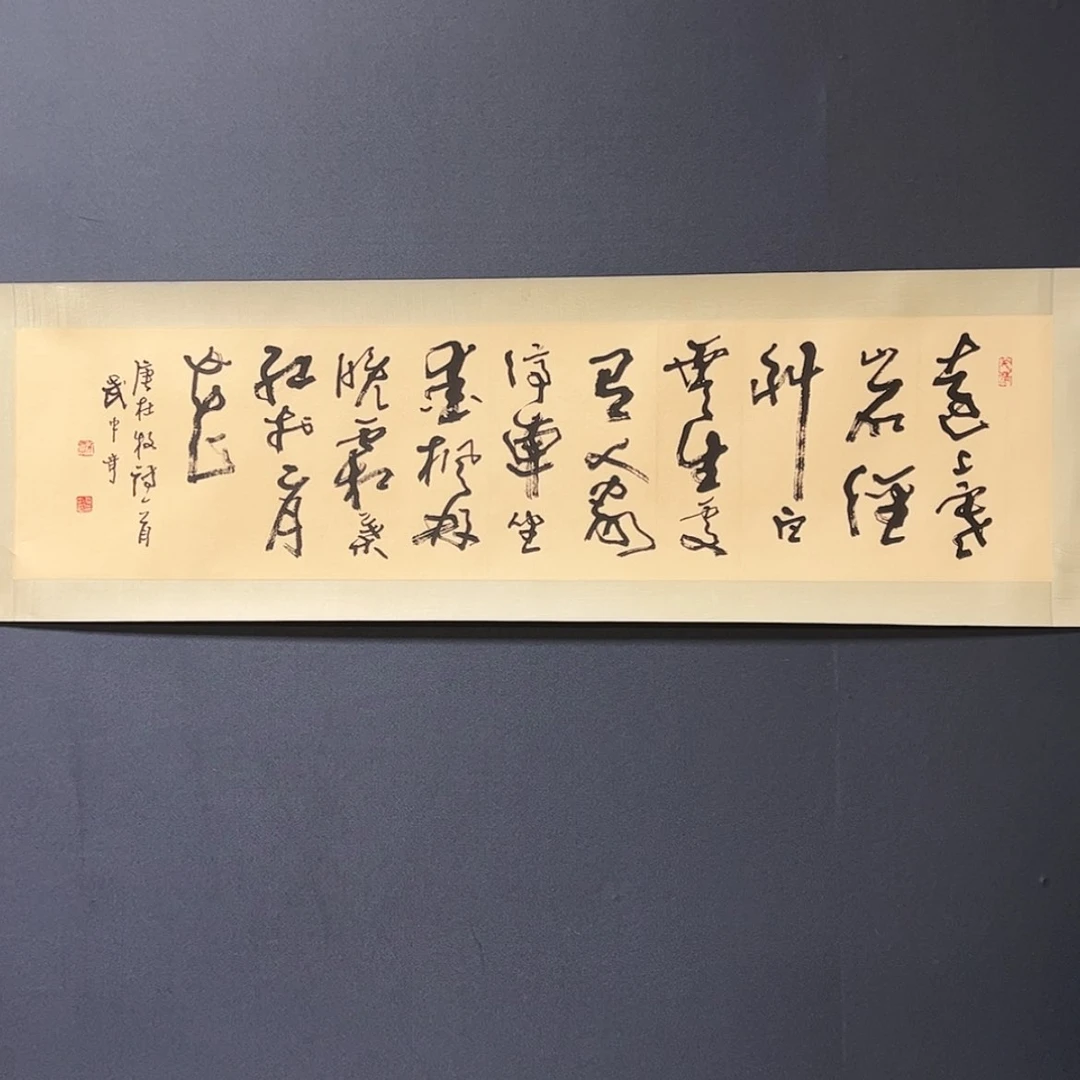 遠上寒
山石徑
斜白
雲生處
有人家
停車坐
愛楓林
晚霜葉
紅於二月
花
唐杜牧詩一首
武中奇